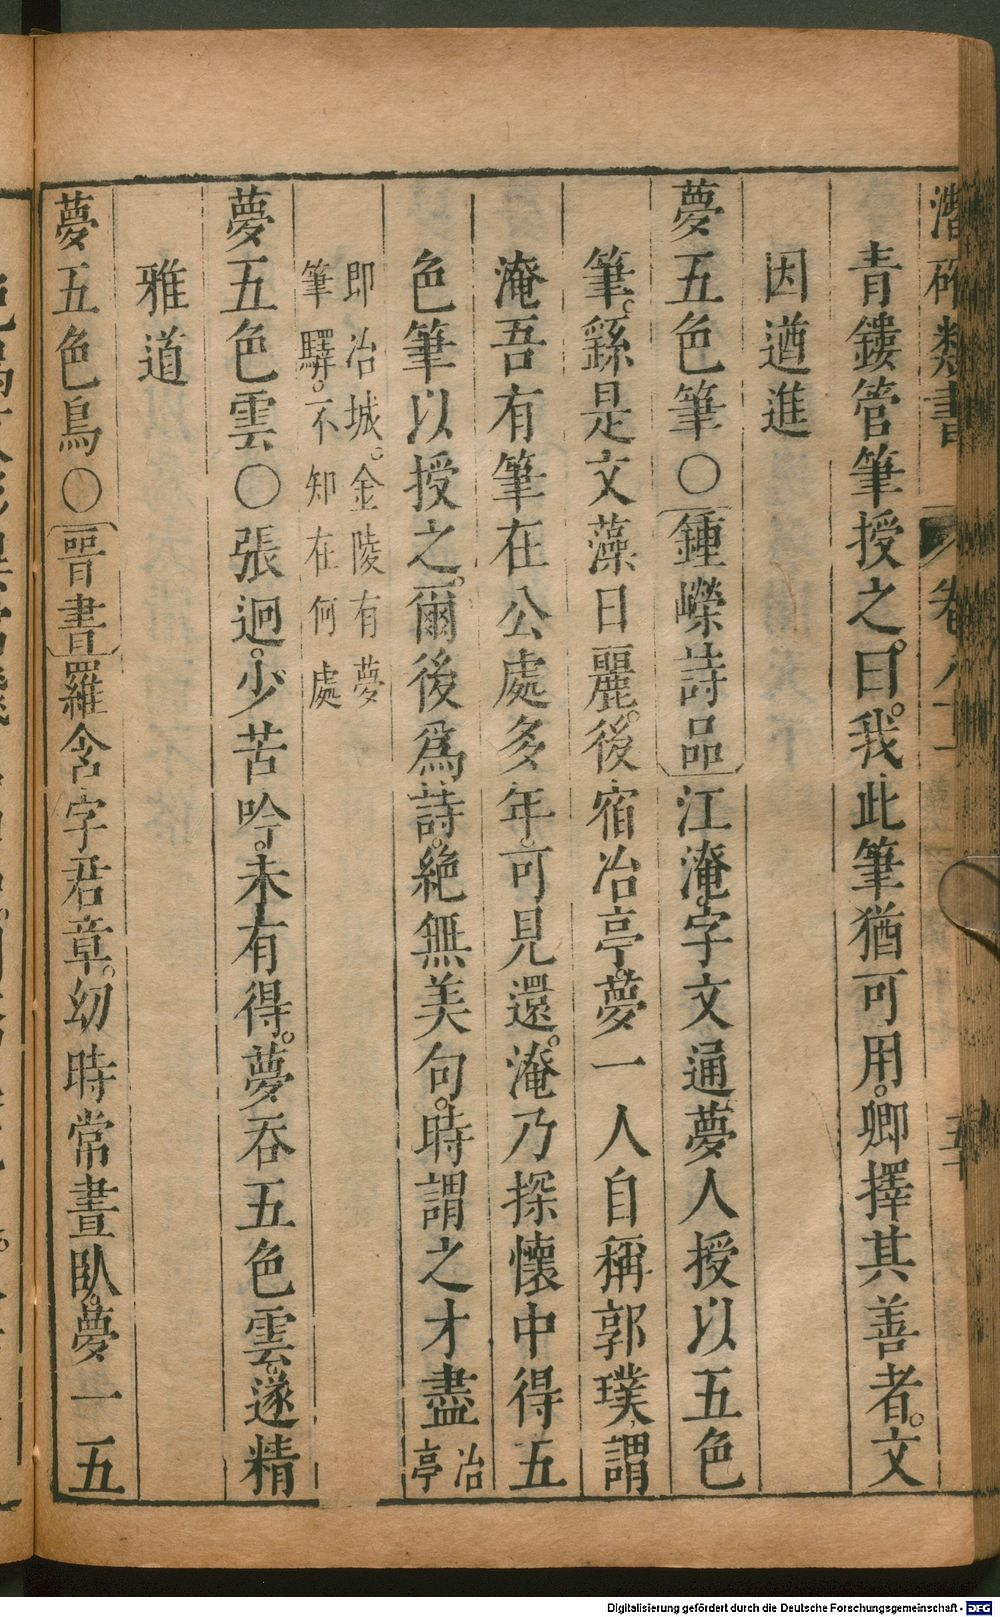 潛確類書 卷八十 五十
青鏤管筆授之。曰。我此筆猶可用。卿擇其善者。文
因遒進
夢五色筆〇鍾嶸詩品江淹。字文通夢人授以五色
筆。繇是文藻日麗。後宿冶亭。夢一人自稱郭璞。謂
淹吾有筆在公處多年。可見還。淹乃探懷中得五
色筆以授之。爾後爲詩。絶無美句。時謂之才盡冶亭
即冶城。金陵有夢
筆驛。不知在何處
夢五色雲〇張迥。少苦吟。未有得。夢吞五色雲。遂精
雅道
夢五色鳥〇晉書羅含字君章。幼時常晝臥。夢一五
Digitalisierung gefördert durch die Deutsche Forschungsgemeinschaft - DFG